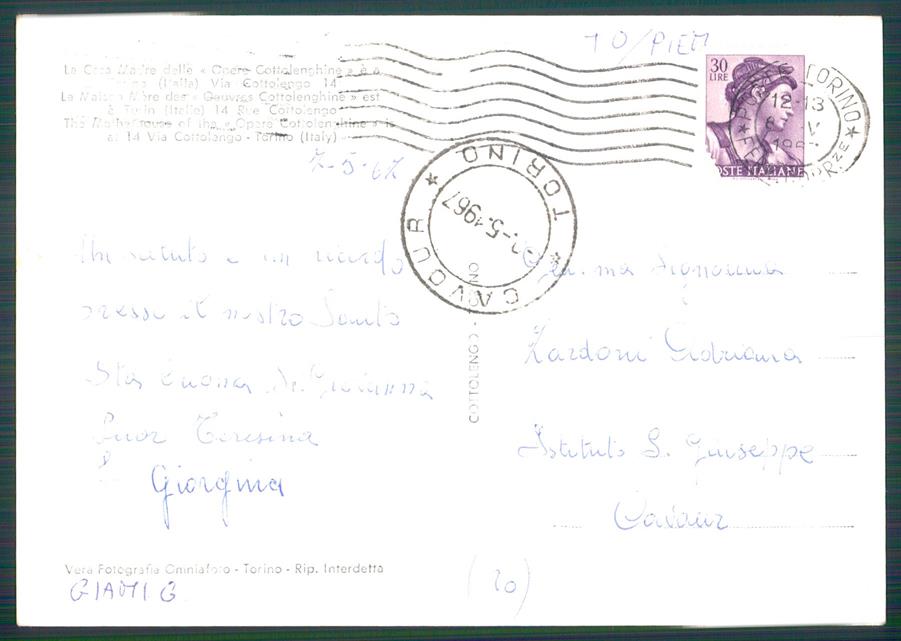 TO/PIEM
La Casa Madre delle « Opere Cottolenghine » è a
(Italia) Via Cottolengo 14
La Maison Mère des « Oeuvres Cottolenghine » est
à Turin (Italie) 14 Rue Cottolengo
The Motherhouse of the « Opere Cottolenghine » is
at 14 Via Cottolengo - Torino (Italy)
30
LIRE
POSTE ITALIANE
TORINO
12-13
V
196
7-5-67
CAVOUR * TORINO *
-5.1967
COTTOLENGO -
Un saluto e un ricordo
presso il nostro Santo
Sta buona
Suor Teresina
Giorgina
Gen.ma Signorina
Zardoni Adriana
Istituto S. Giuseppe
Cavour
Vera Fotografia Omniafoto - Torino - Rip. Interdetta
GIAMI G.
(20)